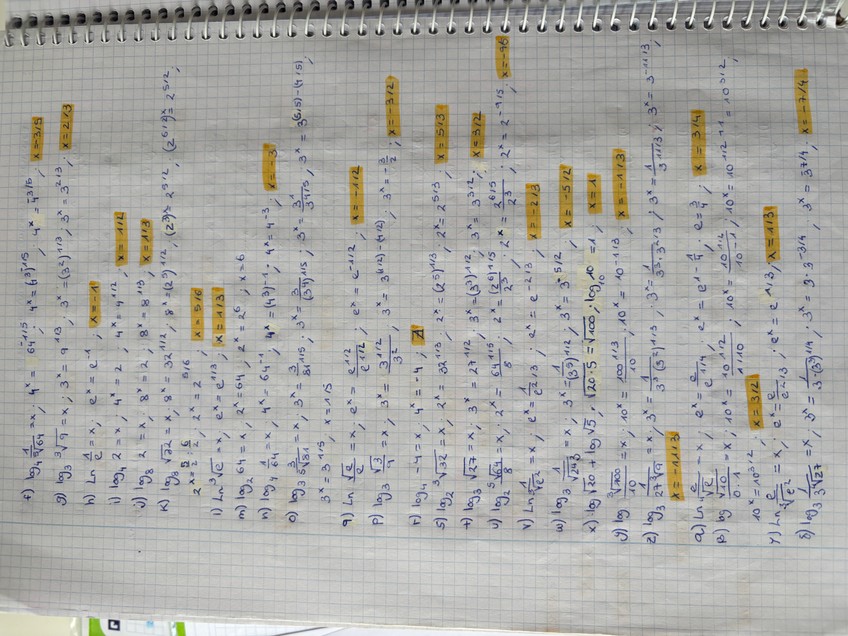 f) log₄ 1/⁵√64 = x ; 4ˣ = 64^-1/5 ; 4ˣ = (4³)^-1/5 ; 4ˣ = 4^-3/5 ; x = -3/5
g) log₃ ³√9 = x ; 3ˣ = 9^1/3 ; 3ˣ = (3²)^1/3 ; 3ˣ = 3^2/3 ; x = 2/3
h) Ln 1/e = x , eˣ = e⁻¹ ; x = -1
i) log₄ 2 = x , 4ˣ = 2 ; 4ˣ = 4^1/2 ; x = 1/2
j) log₈ 2 = x , 8ˣ = 2 ; 8ˣ = 8^1/3 ; x = 1/3
k) log₈ √32 = x , 8ˣ = 32^1/2 , 8ˣ = (2⁵)^1/2 , (2³)ˣ = 2^5/2 ,
x = 5/6
l) Ln ³√e = x , eˣ = e^1/3 ; x = 1/3
m) log₂ 64 = x , 2ˣ = 64 , 2ˣ = 2⁶ , x = 6
n) log₄ 1/64 = x , 4ˣ = 64⁻¹ , 4ˣ = (4³)⁻¹ , 4ˣ = 4⁻³ ; x = -3
o) log₃ 3/⁵√81 = x , 3ˣ = 3/81^1/5 , 3ˣ = 3/(3⁴)^1/5 ; 3ˣ = 3¹/3^4/5 , 3ˣ = 3^(5/5)-(4/5) ,
3ˣ = 3^1/5 , x = 1/5
q) Ln √e/e = x , eˣ = e^1/2/e , eˣ = e^-1/2 , x = -1/2
p) log₃ √3/9 = x , 3ˣ = 3^1/2/3² ; 3ˣ = 3^(1/2)-(4/2) , x = -3/2
r) log₄ -4 = x , 4ˣ = -4 ;
s) log₂ ³√32 = x , 2ˣ = 32^1/3 , 2ˣ = (2⁵)^1/3 , 2ˣ = 2^5/3 ; x = 5/3
t) log₃ √27 = x ; 3ˣ = 27^1/2 , 3ˣ = (3³)^1/2 , 3ˣ = 3^3/2 ; x = 3/2
u) log₂ ⁵√64/8 = x ; 2ˣ = 64^1/5/8 , 2ˣ = (2⁶)^1/5/2³ , 2ˣ = 2^6/5/2³ , 2ˣ = 2^-9/5
v) Ln 1/³√e² = x , eˣ = 1/e^2/3 ; eˣ = e^-2/3 , x = -2/3
w) log₃ 1/√243 = x , 3ˣ = 1/(3⁵)^1/2 , 3ˣ = 3^-5/2 , x = -5/2
x) log √20 + log √5 , √20·5 = √100 , log₁₀ 10 = 1 ; x = 1
y) log ³√100/10 = x , 10ˣ = 100^1/3/10 , 10ˣ = 10^-1/3 , x = -1/3
z) log₃ 1/27 ³√9 = x , 3ˣ = 1/3³(3²)^1/3 , 3ˣ = 1/3³·3^2/3 , 3ˣ = 1/3^11/3 , 3ˣ = 3^-11/3
x = -11/3
α) Ln e/⁴√e = x , eˣ = e/e^1/4 , eˣ = e^1-1/4 , x = 3/4
β) log √10/0.1 = x , 10ˣ = 10^1/2/1/10 , 10ˣ = 10^1/2/10⁻¹ , 10ˣ = 10^1/2+1 = 10^3/2
10ˣ = 10^3/2 , x = 3/2
γ) Ln e/³√e² = x , eˣ = e/e^2/3 , eˣ = e^1/3 , x = 1/3
δ) log₃ 1/3 ⁴√27 = x ; 3ˣ = 1/3·(3³)^1/4 , x = -7/4